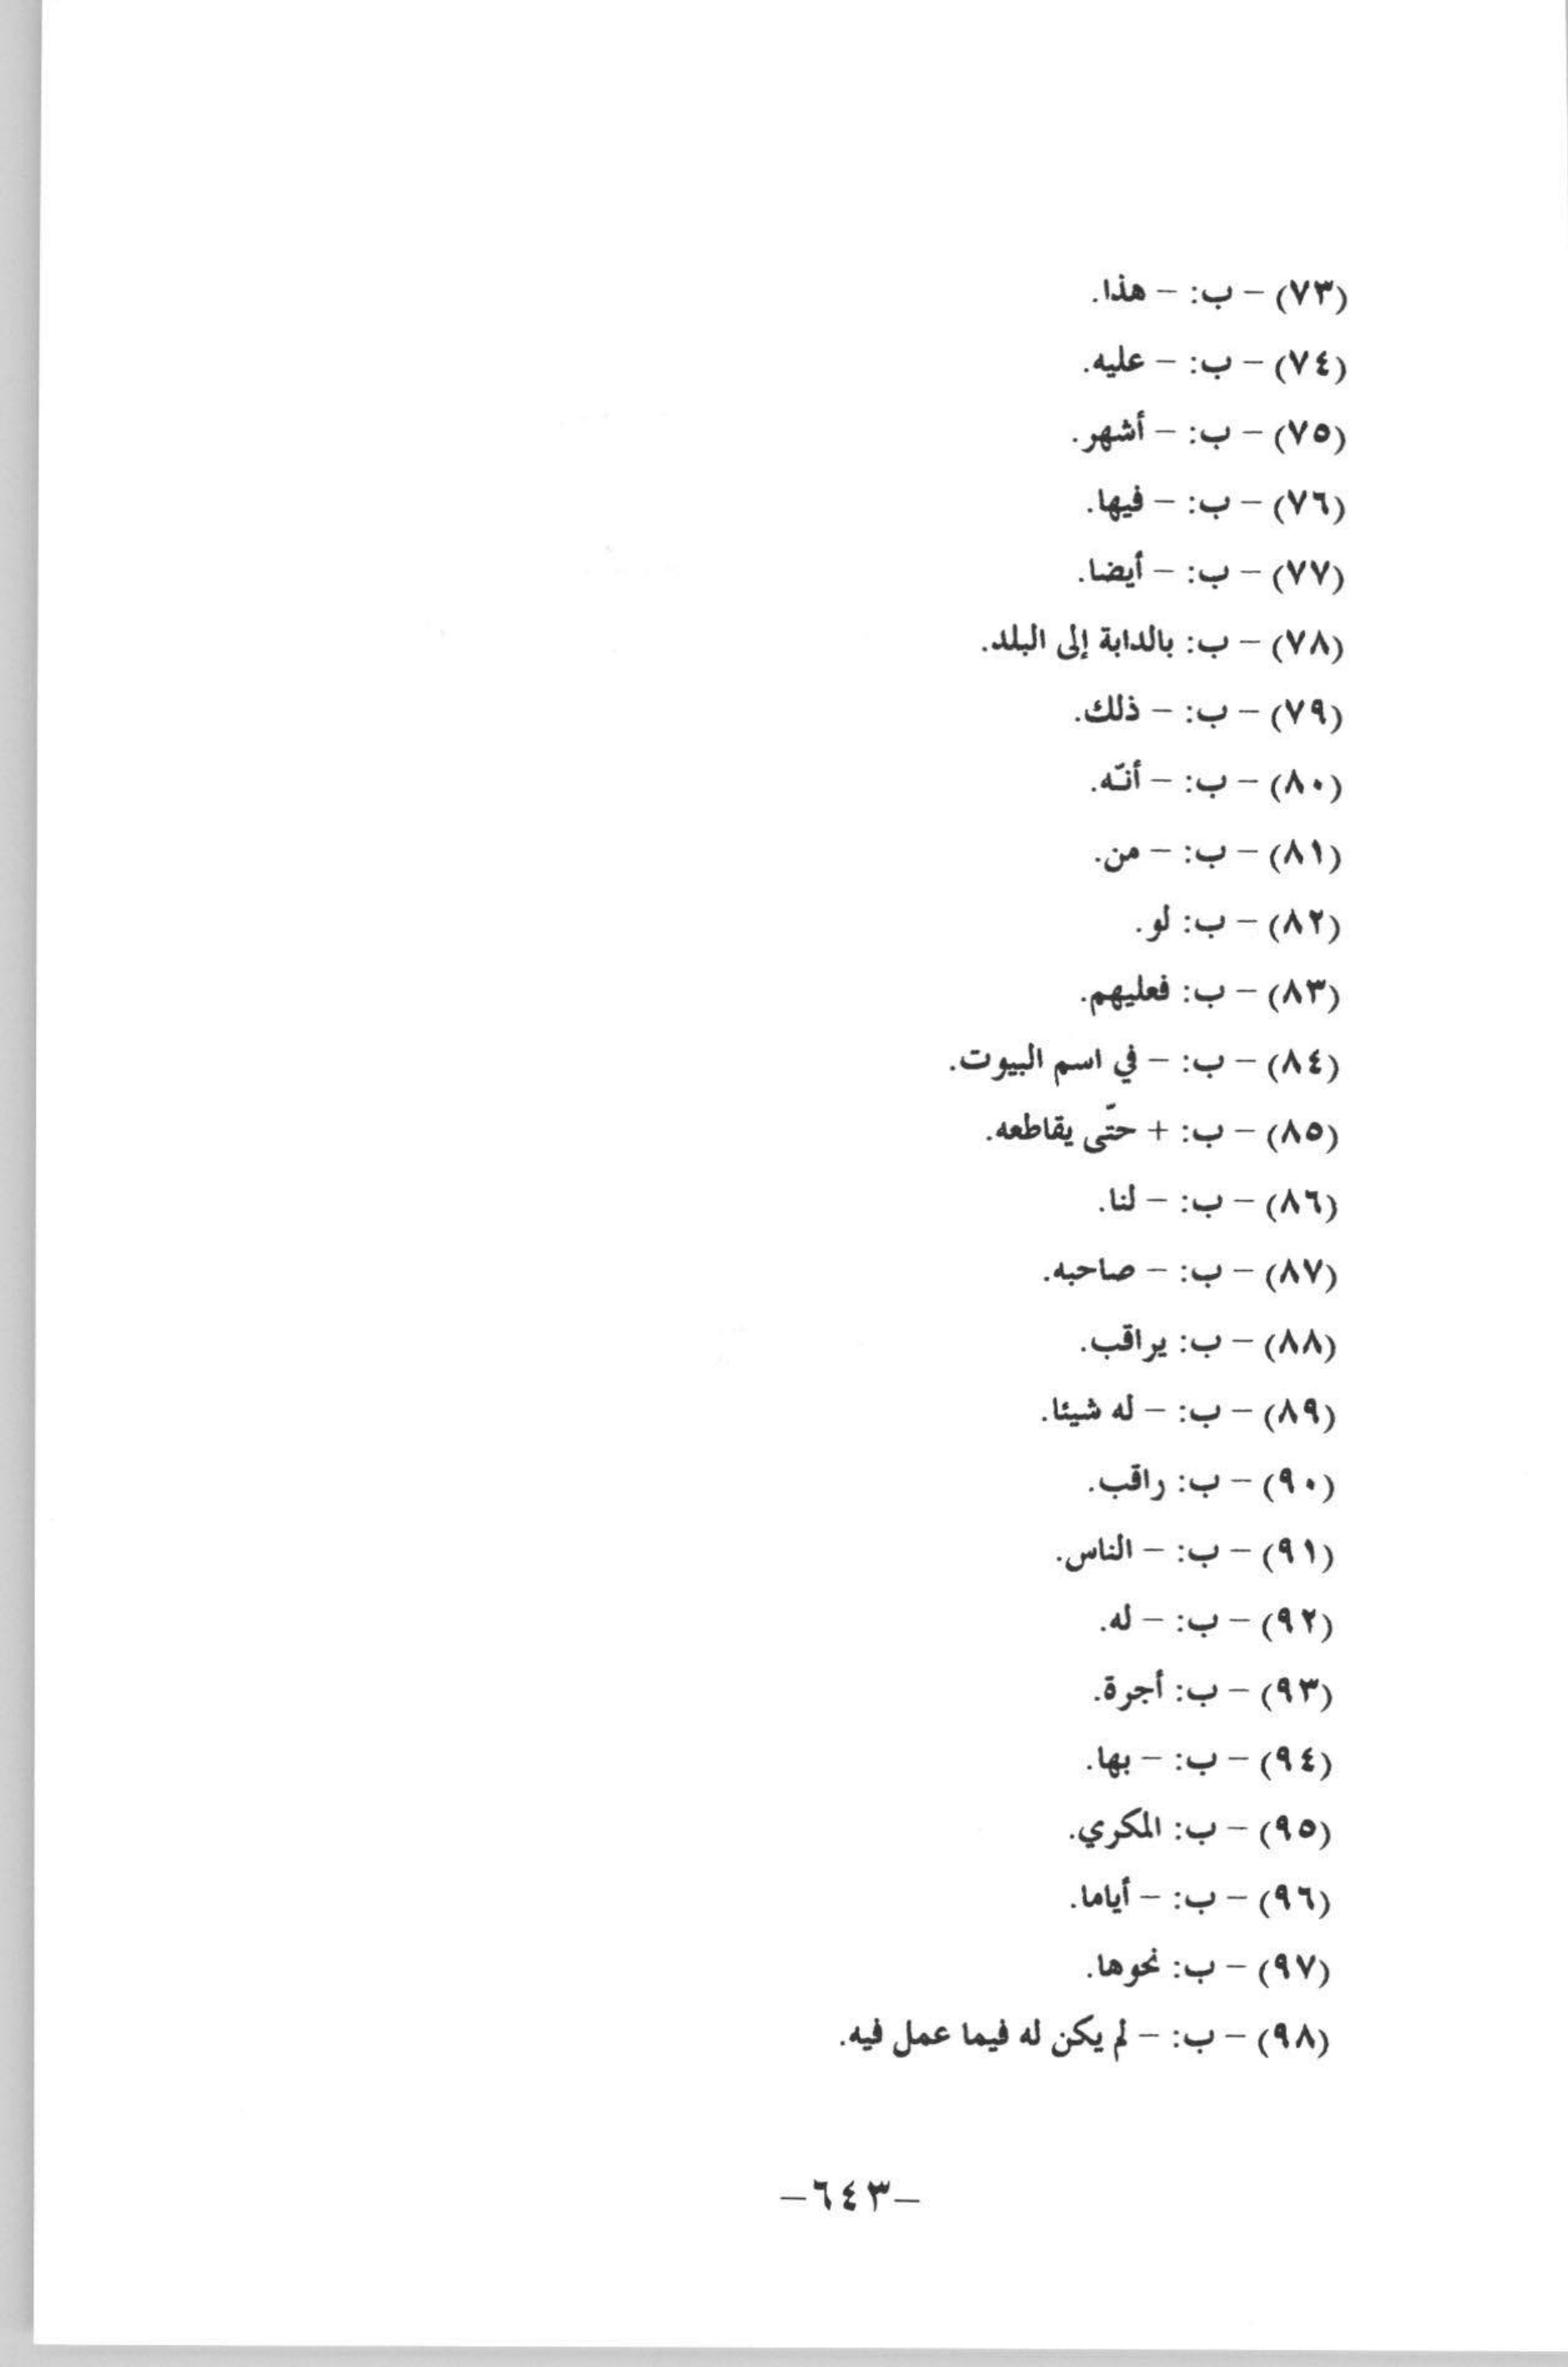 (٧٣) – ب: – هذا.
(٧٤) – ب: – عليه.
(٧٥) – ب: – أشهر.
(٧٦) – ب: – فيها.
(٧٧) – ب: – أيضا.
(٧٨) – ب: بالدابة إلى البلد.
(٧٩) – ب: – ذلك.
(٨٠) – ب: – أنّه.
(٨١) – ب: – من.
(٨٢) – ب: لو.
(٨٣) – ب: فعليهم.
(٨٤) – ب: – في اسم البيوت.
(٨٥) – ب: + حتّى يقاطعه.
(٨٦) – ب: – لنا.
(٨٧) – ب: – صاحبه.
(٨٨) – ب: يراقب.
(٨٩) – ب: – له شيئا.
(٩٠) – ب: راقب.
(٩١) – ب: – الناس.
(٩٢) – ب: – له.
(٩٣) – ب: أجرة.
(٩٤) – ب: – بها.
(٩٥) – ب: المكري.
(٩٦) – ب: – أياما.
(٩٧) – ب: نحوها.
(٩٨) – ب: – لم يكن له فيما عمل فيه.
–٦٤٣–